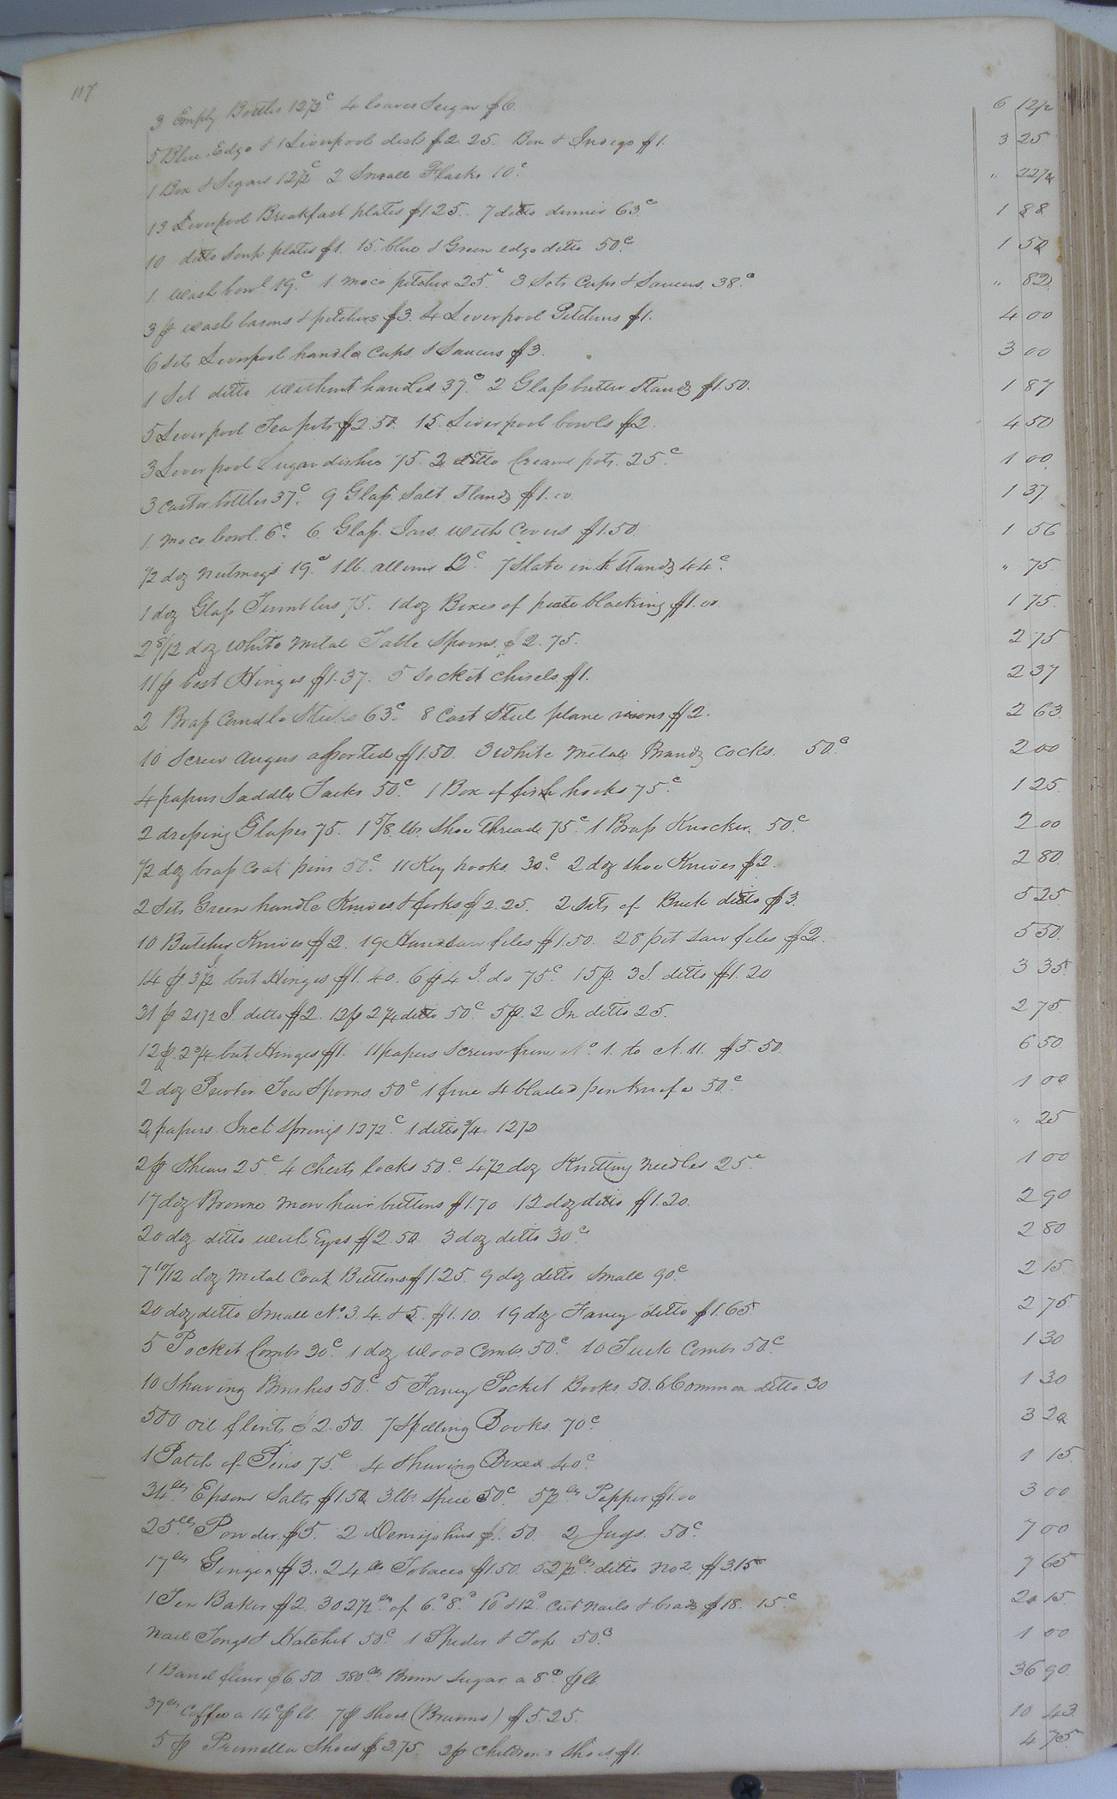 117
3 Empty Bottles 12½c 4 loaves Sugar $6. 6 12½
5 Blue Edge & 1 Liverpool dish $2.25. Box & Indigo $1. 3 25
1 Box & Segars 12½c 2 Small Flasks 10c. " 22½
13 Liverpool Breakfast plates $1.25. 7 ditto dinner 63c 1 88
10 ditto Soup plates $1. 15 blue & Green edge ditto 50c. 1 50
1 wash bowl 19c. 1 moco pitcher 25c. 3 Sets Cups & Saucers. 38.c " 82
3 p wash basons & pitchers $3. 4 Liverpool Pitchers $1. 4 00
6 Sets Liverpool handle Cups & Saucers $3. 3 00
1 Set ditto without handles 37c 2 Glass butter Stands $1.50. 1 87
5 Liverpool Tea pots $2.50. 15 Liverpool bowls $2. 4 50
3 Liverpool Sugar dishes 75. 2 ditto Cream pots. 25c 1 00
3 castor bottles 37c. 9 Glass Salt Stands $1.00 1 37
1 moco bowl 6c. 6 Glass Jars with Covers $1.50. 1 56
½ doz nutmegs 19c 1 lb. allum 12c 7 Slate ink Stands 44c. " 75
1 doz Glass Tumblers 75. 1 doz Boxes of paste blacking $1.00. 1 75
2 5/12 doz white metal Table Spoons $2.75. 2 75
11 p best Hinges $1.37. 5 Socket chisels $1. 2 37
2 Brass Candle Sticks 63c. 8 Cast Steel plane irons $2. 2 63
10 Screw Augurs assorted $1.50. 3 white metal Brandy cocks. 50c 2 00
4 papers Saddle Tacks 50c. 1 Box of fish hooks 75c 1 25
2 dressing Glasses 75. 1 5/8 lbs Shoe thread 75c 1 Brass Knocker. 50c. 2 00
½ doz brass Coat pins 50c 11 Key hooks. 30c. 2 doz shoe Knives $2. 2 80
2 Sets Green handle Knives & forks $2.25. 2 sets of Buck ditto $3. 5 25
10 Butcher Knives $2. 19 Handsaw files $1.50. 28 pit Saw files $2. 5 50
14 p 3½ I. but Hinges $1.40. 6 p 4 I. do 75c 15 p. 3 I. ditto $1.20 3 35
31 p 2½ I. ditto $2. 12 p 2¼ ditto 50c 5 p. 2 In ditto 25. 2 75
12 p. 2¾ but Hinges $1. 11 papers Screws from No. 1. to N. 11. $5.50. 6 50
2 doz Pewter Tea Spoons 50c 1 fine 4 bladed penknife 50c 1 00
2 papers Inct Springs 12½c 1 ditto ¾ 12½ " 25
2 p Shears 25c 4 Chests locks 50c. 4½ doz Knitting Needles 25c 1 00
17 doz Browne Mow hair buttons $1.70 12 doz ditto $1.20. 2 90
20 doz ditto with Eyes $2.50. 3 doz ditto 30c 2 80
7 10/12 doz Metal Coat Buttons $1.25. 9 doz ditto Small 90c 2 15
20 doz ditto Small No. 3. 4. & 5. $1.10. 19 doz Fancy ditto $1.65 2 75
5 Pocket Combs 30c. 1 doz wood Combs 50c. 10 Tuck Combs 50c. 1 30
10 Shaving Brushes 50c. 5 Fancy Pocket Books. 50. 6 Common ditto 30 1 30
500 oil flints $2.50. 7 Spelling Books. 70c 3 20
1 Patch of Pins 75c 4 Shaving Boxes 40c. 1 15
34 lbs Epsom Salts $1.50. 3 lbs Spice 50c. 5½ lbs Pepper $1.00 3 00
25 lbs Powder $5. 2 Demijohns $1.50. 2 Jugs. 50c. 7 00
17 lbs Ginger $3. 24 lbs Tobacco $1.50. 52½ lbs ditto No 2. $3.15 7 65
1 Ten Baker $2. 302½ lbs of 6.d 8.d 10d & 12d cut nails & brads $18. 15c 20 15
Nail Tongs & Hatchet 50c. 1 Spider & Top 50c. 1 00
1 Barrel flour $6.50. 380 lbs Brown Sugar a 8c p lb. 36 90
37 lbs Coffee a 14c p lb. 7 p Shoes (Broums) $5.25. 10 43
5 p Prunella Shoes $3.75. 3 p Childrens Shoes $1. 4 75